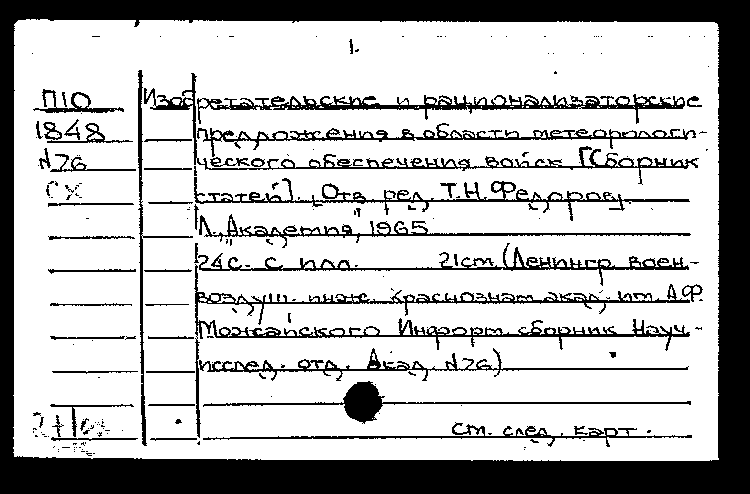 1.
П10 Изобретательские и рационализаторские
1848 предложения в области метеорологи-
N76 ческого обеспечения войск. [Сборник
СХ статей]. Отв. ред. Т.Н. Федорову.
Л., "Академия", 1965
24с. с илл. 21см. (Ленингр. воен.-
воздуш. инж. краснознам. акад. им. А.Ф.
Можайского. Информ. сборник Науч.-
исслед. отд. Акад. N76)
см. след. карт.